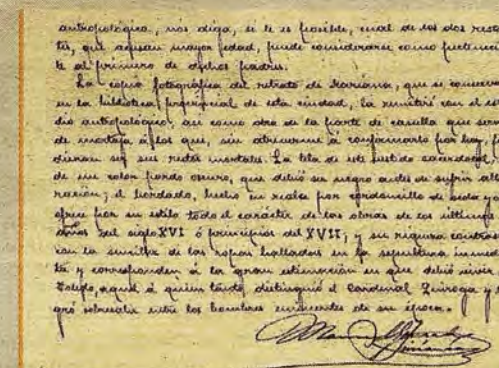 antropológico, nos diga, si le es posible, cual de los dos resto
tes, que acusan mayor edad, puede considerarse como pertenecien
te al primero de dichos padres.
La copia fotográfica del retrato de Mariana, que se conserva
en la biblioteca provincial de esta ciudad, la remitiré con el estu
dio antropológico, asi como otra de la parte de casulla que serv
de mortaja á los que, sin atreverme á confirmarlo por hoy, pu
dieran ser sus restos mortales. La tela de este vestido sacerdotal,
de un color pardo oscuro, que debió ser negro antes de sufrir alte
ración; el bordado, hecho en realce por cordoncillo de seda y o
ofrece por su estilo todo el carácter de las obras de los últimos
años del siglo XVI ó principios del XVII; y su riqueza contrasta
con la sencillez de las ropas halladas en la sepultura inmedia
ta y corresponden á la gran estimación en que debió vivir
Toledo, aquel á quien tanto distinguió el Cardenal Quiroga y
gró sobresalir entre los hombres eminentes de su época.